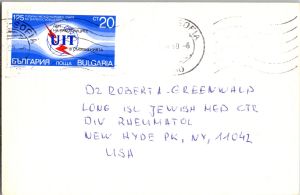 125 СТ 20
UIT
БЪЛГАРИЯ ПОЩА BULGARIA
DZ ROBERT A. GREENWALD
LONG ISL JEWISH MED CTR
DIV RHEUMATOL
NEW HYDE PK, NY, 11042
USA